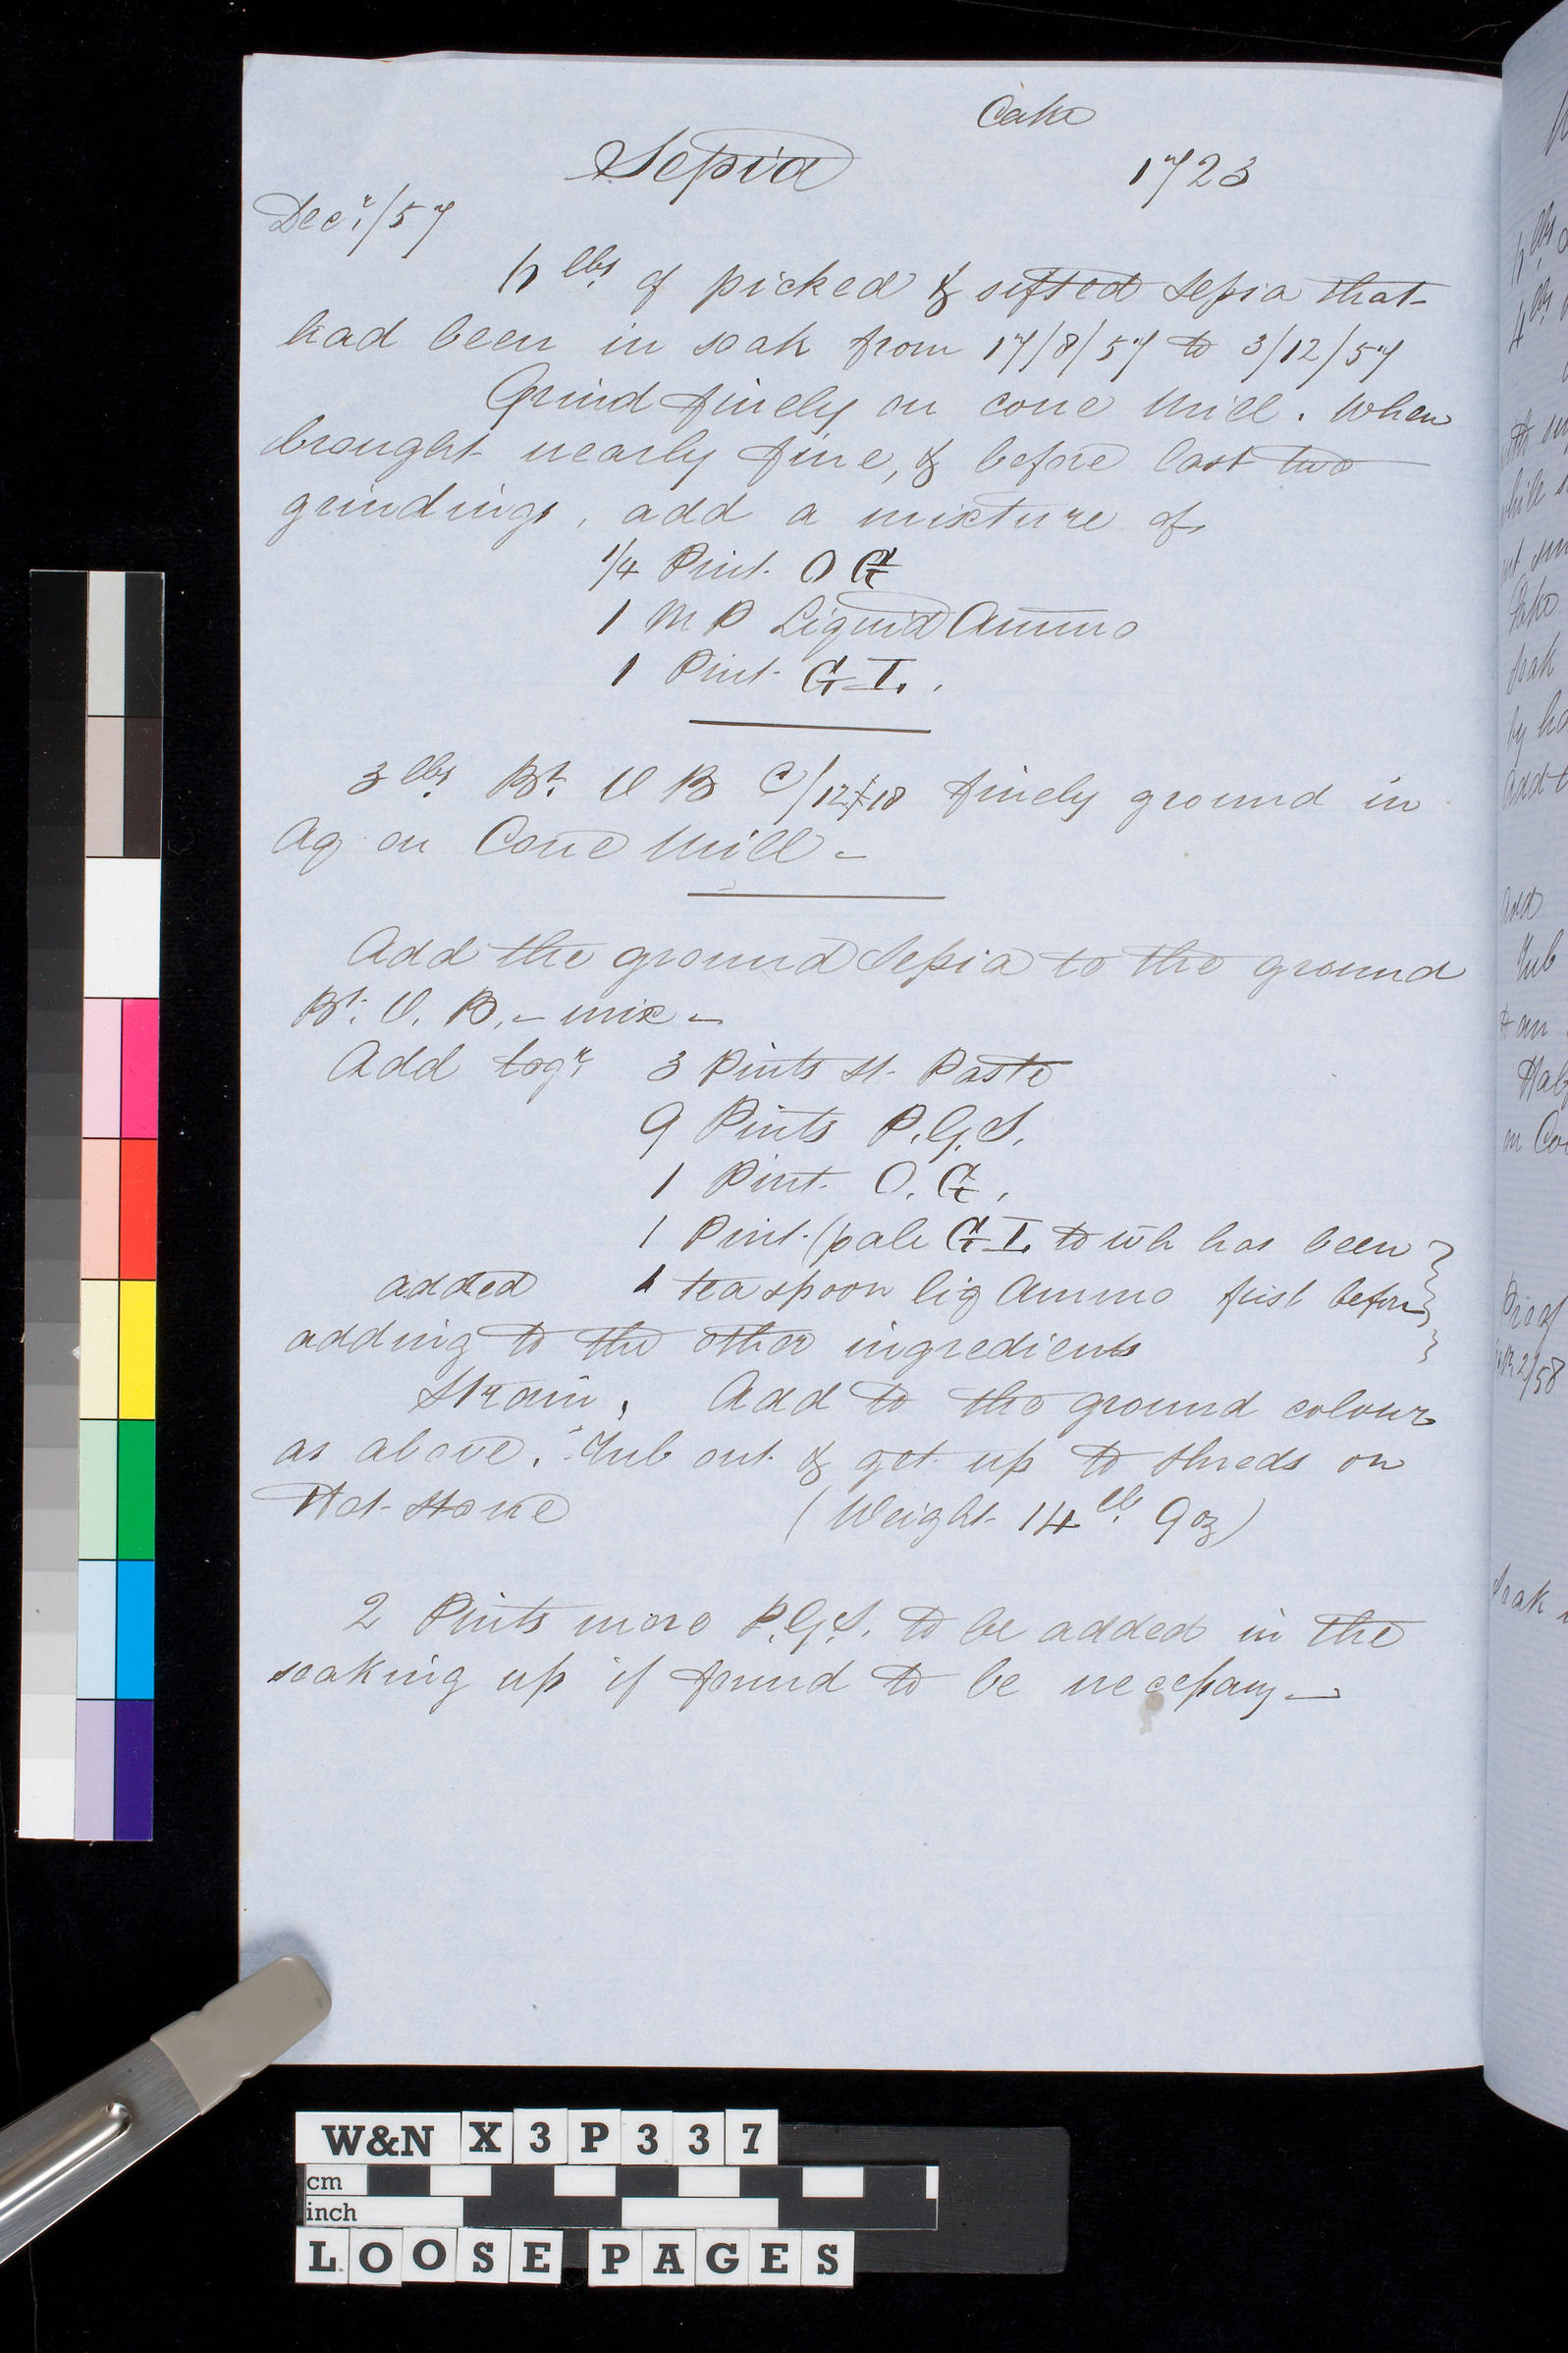 Cake
Sepia 1723
Decr/57
lbs of picked & sifted Sepia that
had been in soak from 17/8/57 to 3/12/57
Grind finely on cone Mill. When
brought nearly fine, & before last two
grindings, add a mixture of
1/4 Pint O G
1 M P Liquid Ammo
1 Pint G I.
3 lbs Bt. V B C/12/18 finely ground in
Aq on Cone Mill -
Add the ground Sepia to the ground
Bt. V. B. - mix -
Add togr. 3 Pints St. Paste
9 Pints P.G.S.
1 Pint O. G.
1 Pint (pale G I. to wh has been
added 1 tea spoon liq Ammo just before
adding to the other ingredients
Strain, Add to the ground colour
as above. Tub out & get up to shreds on
Hot Stone (Weight 14 lb. 9 oz)
2 Pints more P.G.S. to be added in the
soaking up if found to be necessary -
W&N X3P337
cm
inch
LOOSE PAGES